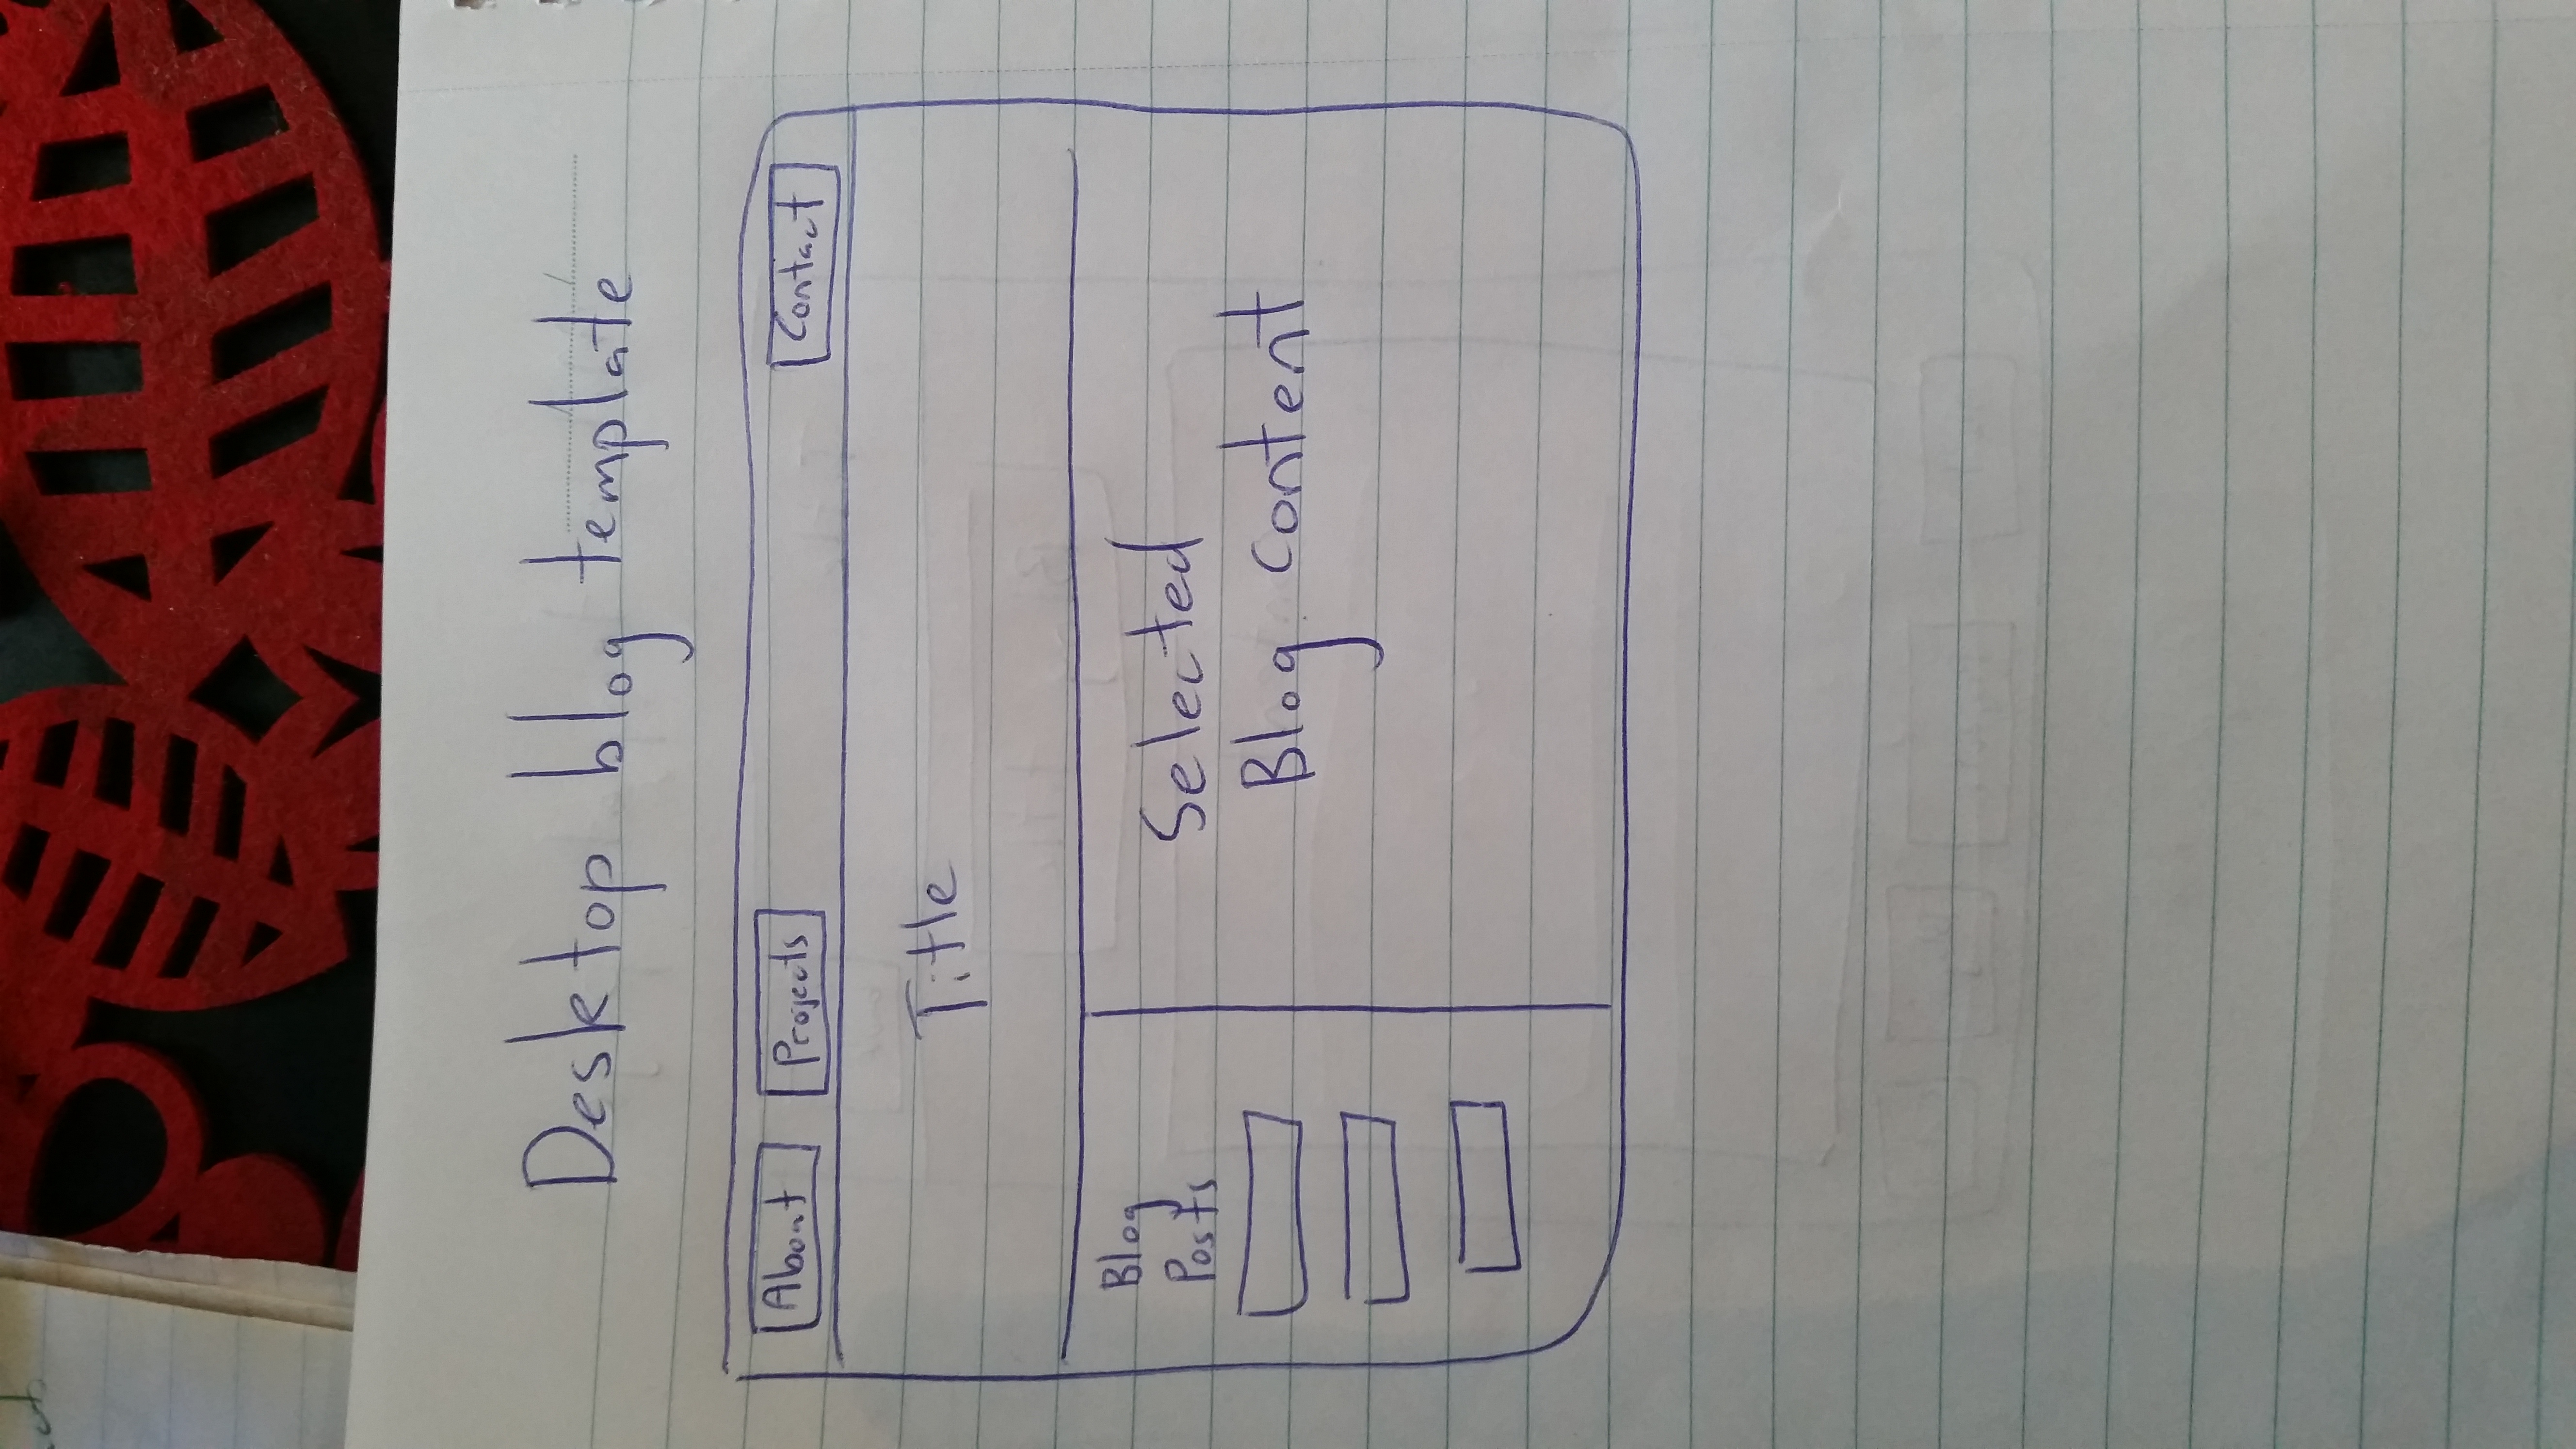 Desktop blog template
About Projects Contact
Title
Blog
Posts
Selected
Blog content